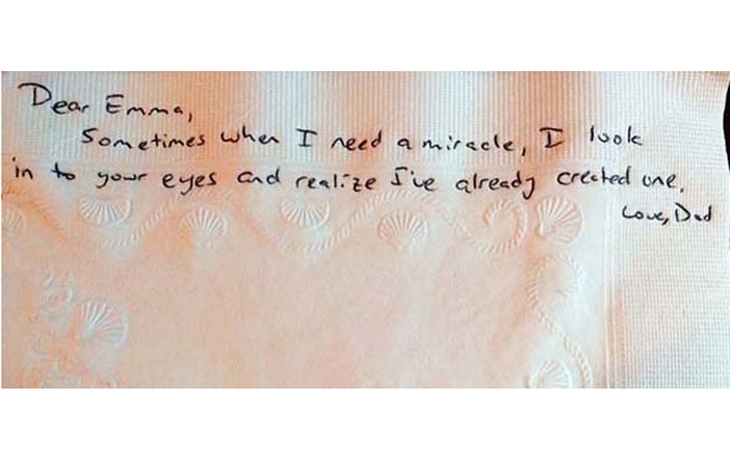 Dear Emma,
Sometimes when I need a miracle, I look
in to your eyes and realize I've already created one.
Love, Dad